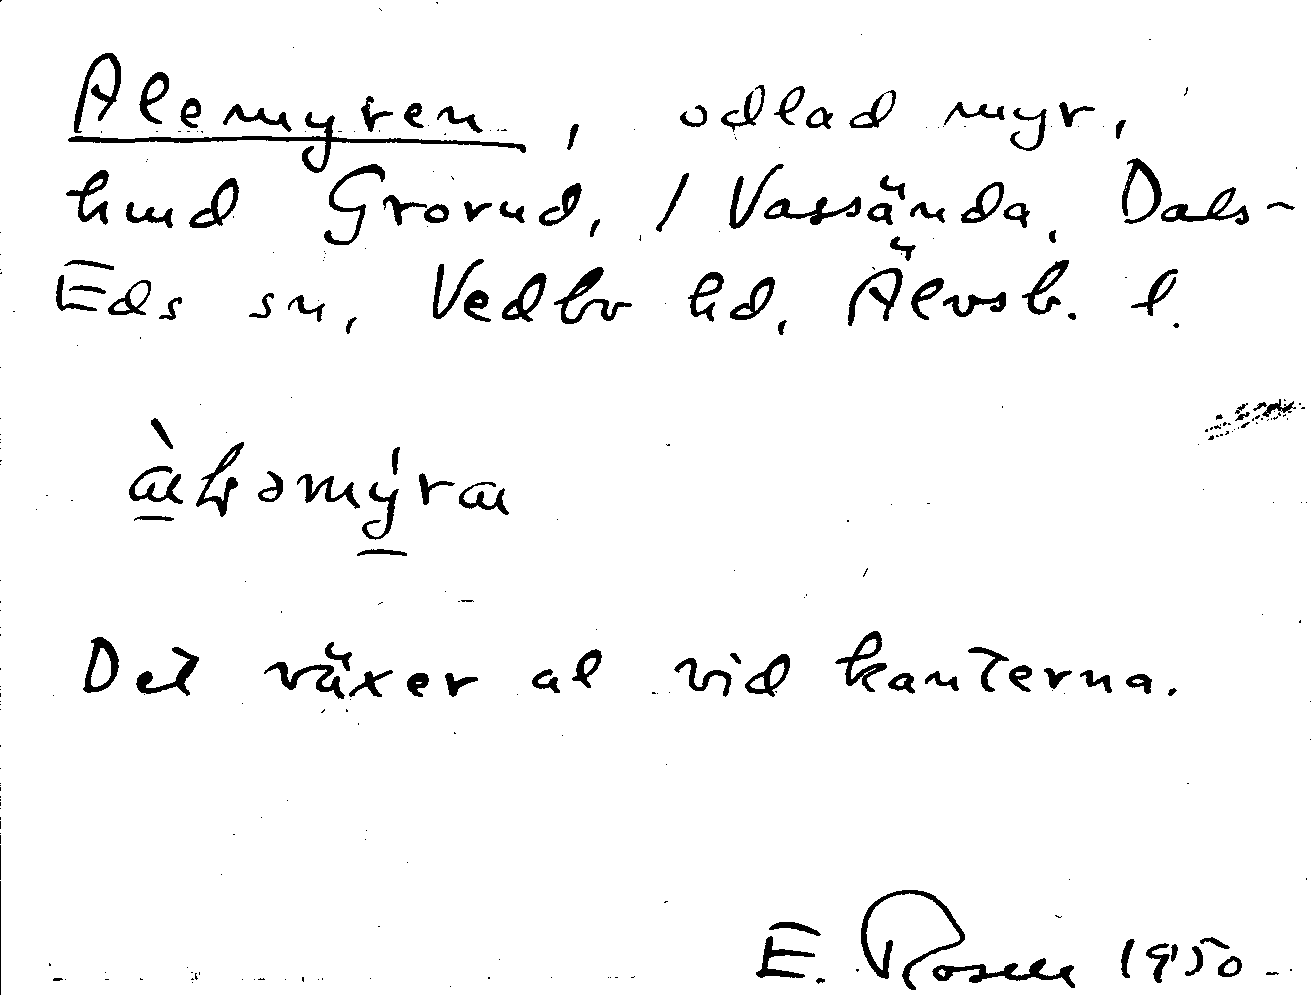 Alemyren, odlad myr,
hmd Grorud, 1/1 Vassända, Dals-
Eds sn, Vedbo hd, Älvsb. l.
Det växer al vid kanterna.
E. Rosell 1950